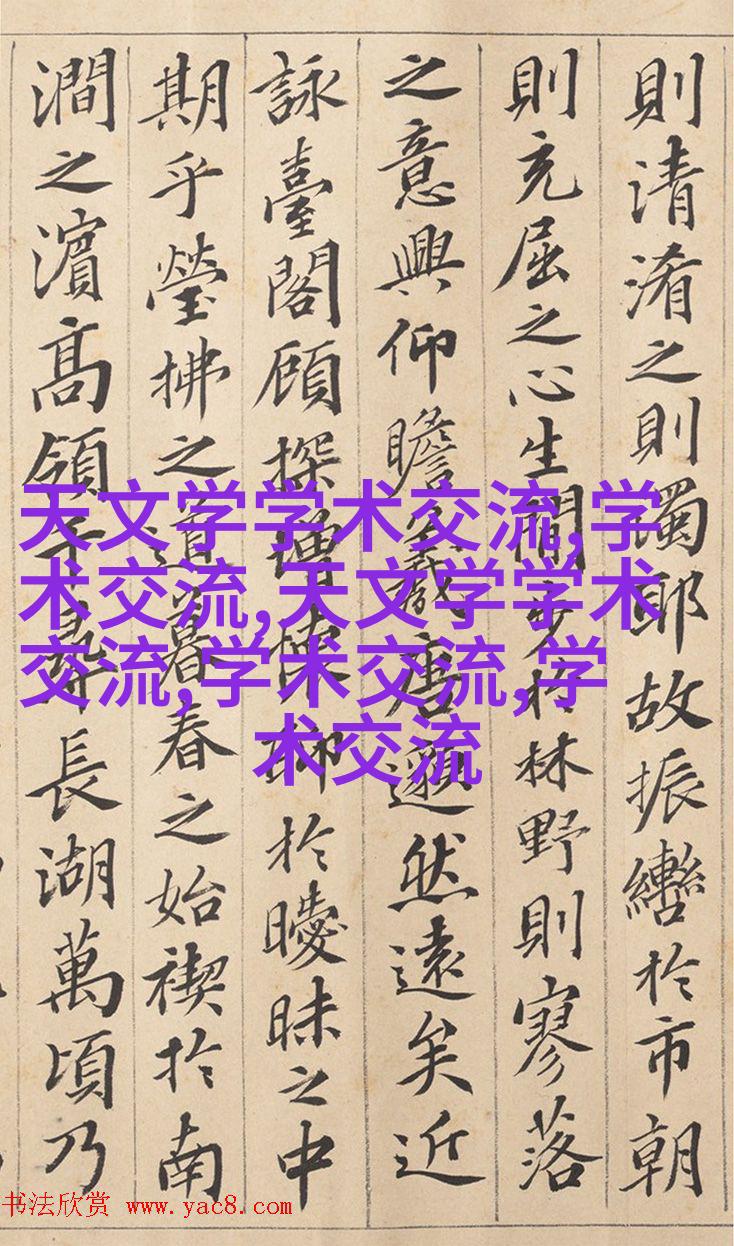 則清淆之則濁耶故振轡於市朝
則充屈之心生閒步於林野則寥落
之意興仰瞻羲唐邈然遠矣近
詠臺閣顧探增懷聊於曖昧之中
期乎瑩拂之道暮春之始禊於南
澗之濱高領千尋長湖萬頃乃
天文学学术交流,学
术交流,天文学学术
交流,学术交流,学
术交流
书法欣赏 www.yac8.com